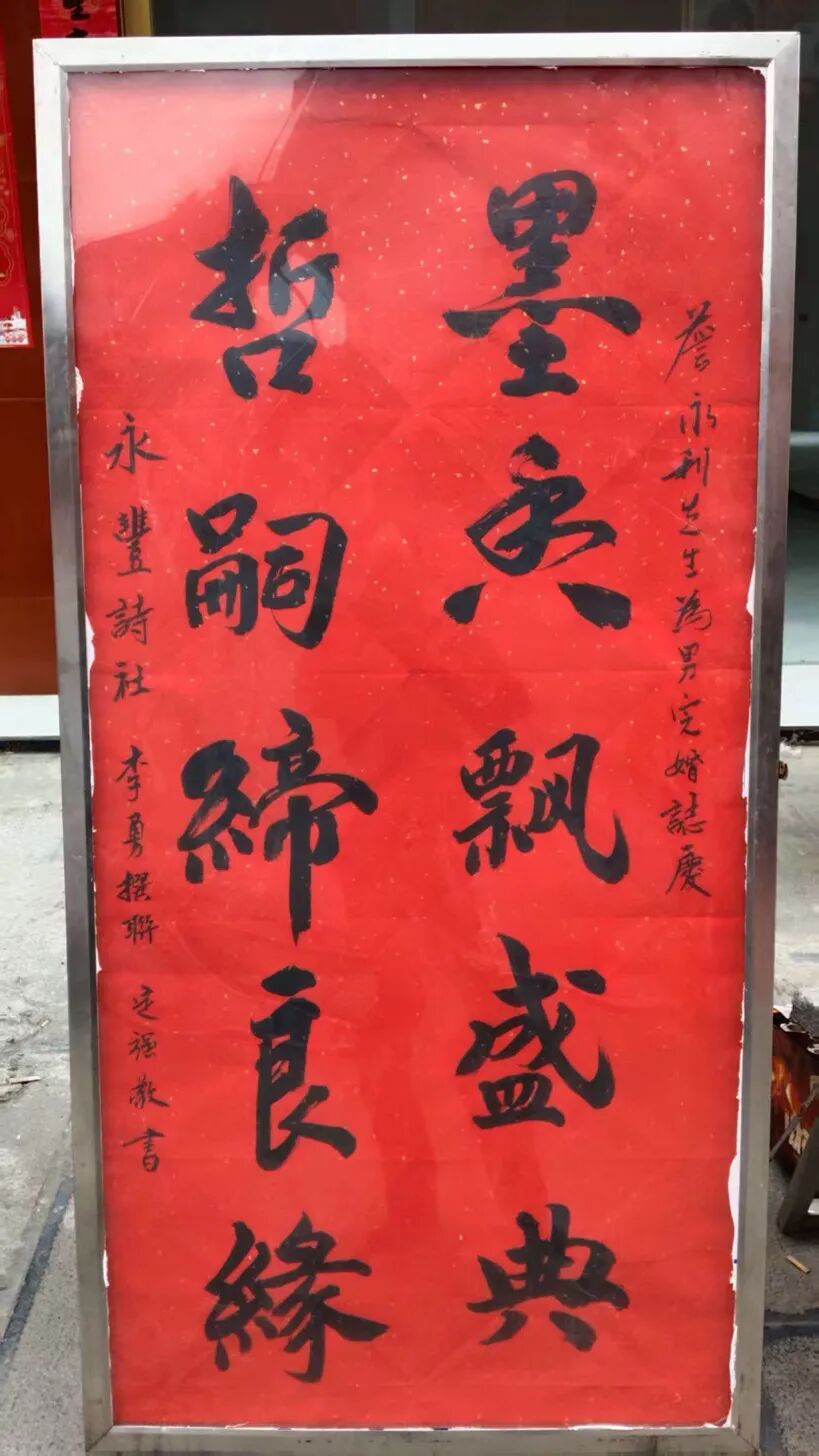 詹永利先生為男完婚誌慶
墨香飄盛典
哲嗣締良緣
永豐詩社 李勇撰聯 定強敬書